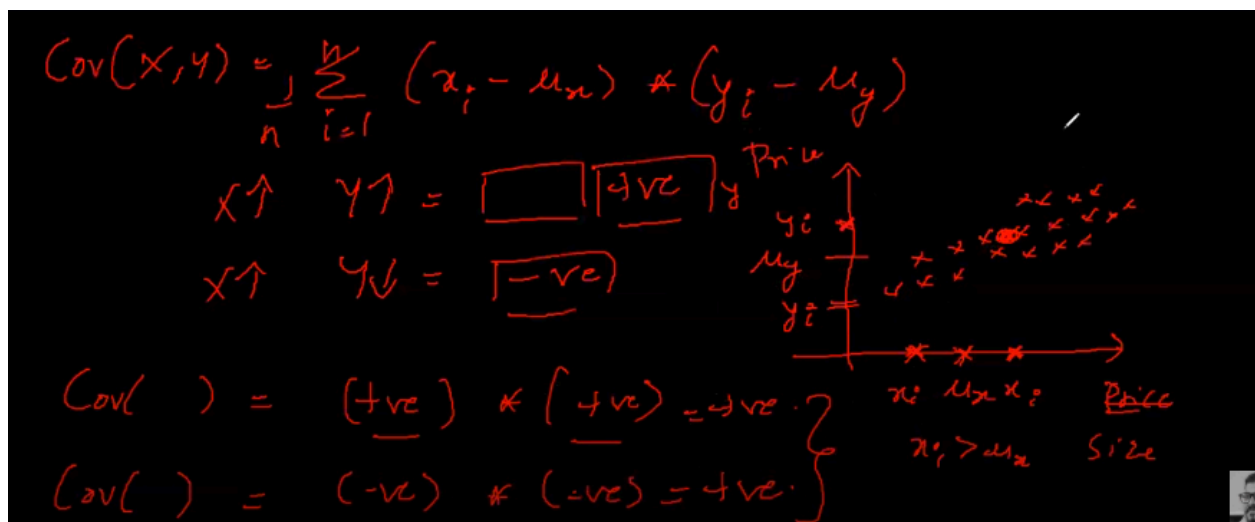 Cov(x,y) = 1/n Σ i=1 n (xi - μx) * (yi - μy)
x↑ y↑ = +ve
x↑ y↓ = -ve
Cov( ) = (+ve) * (+ve) = +ve.
Cov( ) = (-ve) * (-ve) = +ve.
y Price
yi
μy
yi
xi μx xi Price
xi > μx Size